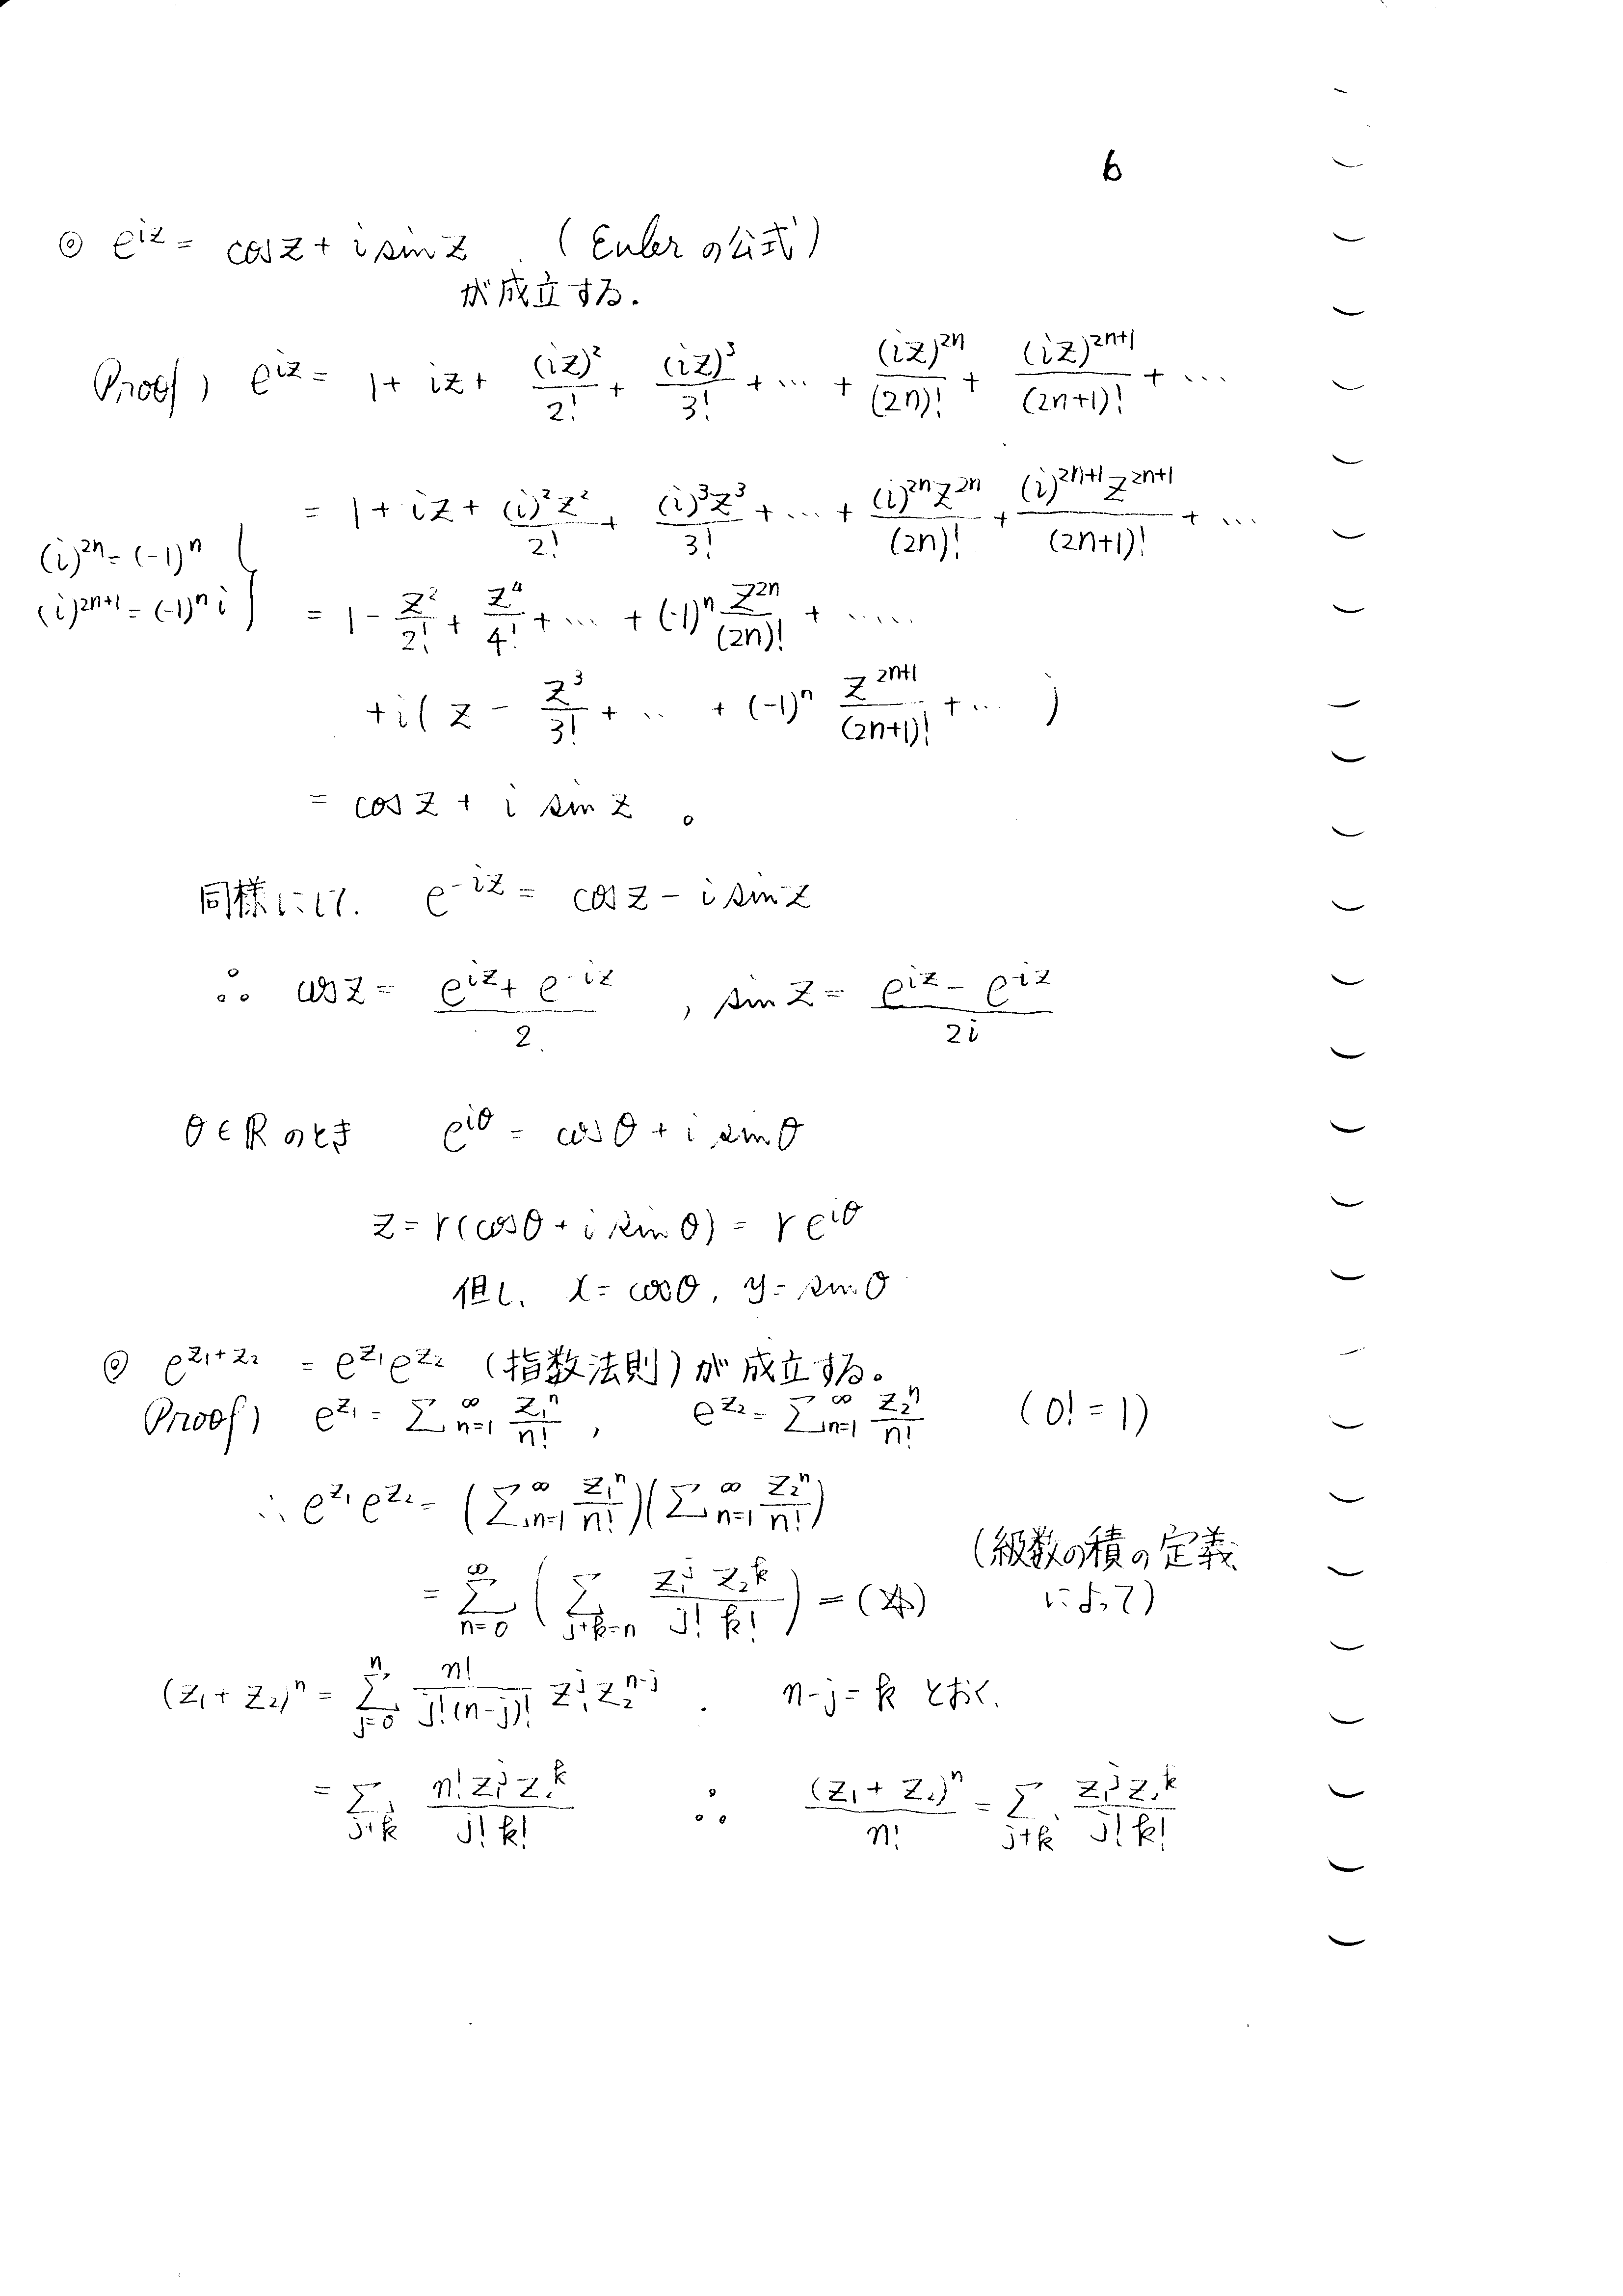 6
◎ e^{iz} = cos z + i sin z (Euler の公式)
が成立する.
Proof) e^{iz} = 1 + iz + (iz)^2/2! + (iz)^3/3! + … + (iz)^{2n}/(2n)! + (iz)^{2n+1}/(2n+1)! + …
= 1 + iz + (i)^2z^2/2! + (i)^3z^3/3! + … + (i)^{2n}z^{2n}/(2n)! + (i)^{2n+1}z^{2n+1}/(2n+1)! + …
(i)^{2n} = (-1)^n
(i)^{2n+1} = (-1)^n i
= 1 - z^2/2! + z^4/4! + … + (-1)^n z^{2n}/(2n)! + ……
+ i( z - z^3/3! + … + (-1)^n z^{2n+1}/(2n+1)! + … )
= cos z + i sin z 。
同様にして. e^{-iz} = cos z - i sin z
∴ cos z = (e^{iz} + e^{-iz})/2 , sin z = (e^{iz} - e^{iz})/2i
θ∈ℝ のとき e^{iθ} = cos θ + i sin θ
z = r(cos θ + i sin θ) = r e^{iθ}
但し、 x = cos θ, y = sin θ
◎ e^{z_1+z_2} = e^{z_1}e^{z_2} (指数法則) が成立する。
Proof) e^{z_1} = Σ_{n=1}^∞ z_1^n/n! , e^{z_2} = Σ_{n=1}^∞ z_2^n/n! (0! = 1)
∴ e^{z_1}e^{z_2} = (Σ_{n=1}^∞ z_1^n/n!)(Σ_{n=1}^∞ z_2^n/n!)
(級数の積の定義
= Σ_{n=0}^∞ ( Σ_{j+k=n} z_1^j z_2^k/j! k! ) = (*) によって)
(z_1 + z_2)^n = Σ_{j=0}^n n!/j!(n-j)! z_1^j z_2^{n-j} . n-j = k とおく.
= Σ_{j+k} n! z_1^j z_2^k/j! k! ∴ (z_1 + z_2)^n/n! = Σ_{j+k} z_1^j z_2^k/j! k!